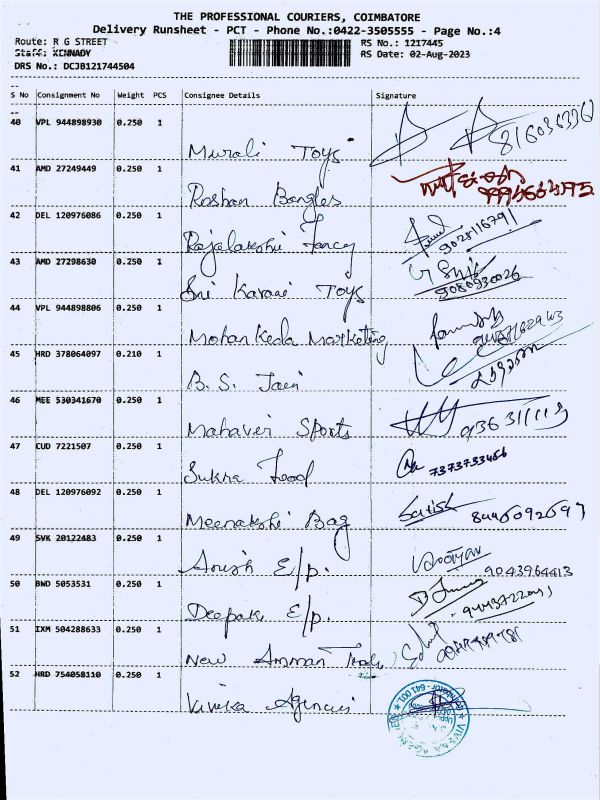 THE PROFESSIONAL COURIERS, COIMBATORE
Delivery Runsheet - PCT - Phone No.:0422-3505555 - Page No.:4
Route: R G STREET RS No.: 1217445
Staff: KENNADY RS Date: 02-Aug-2023
DRS No.: DCJB121744504
S No Consignment No Weight PCS Consignee Details Signature
40 VPL 944898930 0.250 1
Murali Toys
41 AMD 27249449 0.250 1
Roshan Bangles
42 DEL 120976086 0.250 1
Rajalakshi Fancy 9028116791
43 AMD 27298630 0.250 1
Sri Karani Toys 9080930026
44 VPL 944898806 0.250 1
Mohan Keda Marketing
45 HRD 378064097 0.210 1
B. S. Jain
46 MEE 530341670 0.250 1
Mahaveir Sports
47 CUD 7221507 0.250 1
Sukra Food 7373733466
48 DEL 120976092 0.250 1
Meenakshi Bag Satish
49 SVK 20122483 0.250 1
Anish E/p. 9043964413
50 BWD 5053531 0.250 1
Deepak E/p.
51 IXM 504288633 0.250 1
New Amman
52 HRD 754058110 0.250 1
Viveka Agencies